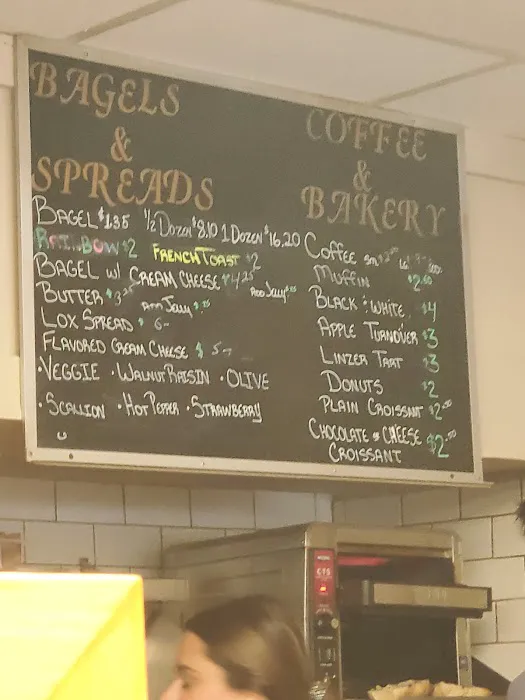 BAGELS
&
SPREADS
BAGEL $1.35 1/2 DOZEN $8.10 1 DOZEN $16.20
RAINBOW $2 FRENCH TOAST $2
BAGEL w/ CREAM CHEESE $4.25
BUTTER ADD JELLY ADD JELLY
LOX SPREAD $ 6-
FLAVORED CREAM CHEESE $ 5-
• VEGGIE • WALNUT RAISIN • OLIVE
• SCALLION • HOT PEPPER • STRAWBERRY
COFFEE
&
BAKERY
COFFEE SM
MUFFIN $2.50
BLACK & WHITE $4
APPLE TURNOVER $3
LINZER TART $3
DONUTS $2
PLAIN CROISSANT $2.50
CHOCOLATE or CHEESE $2.50
CROISSANT